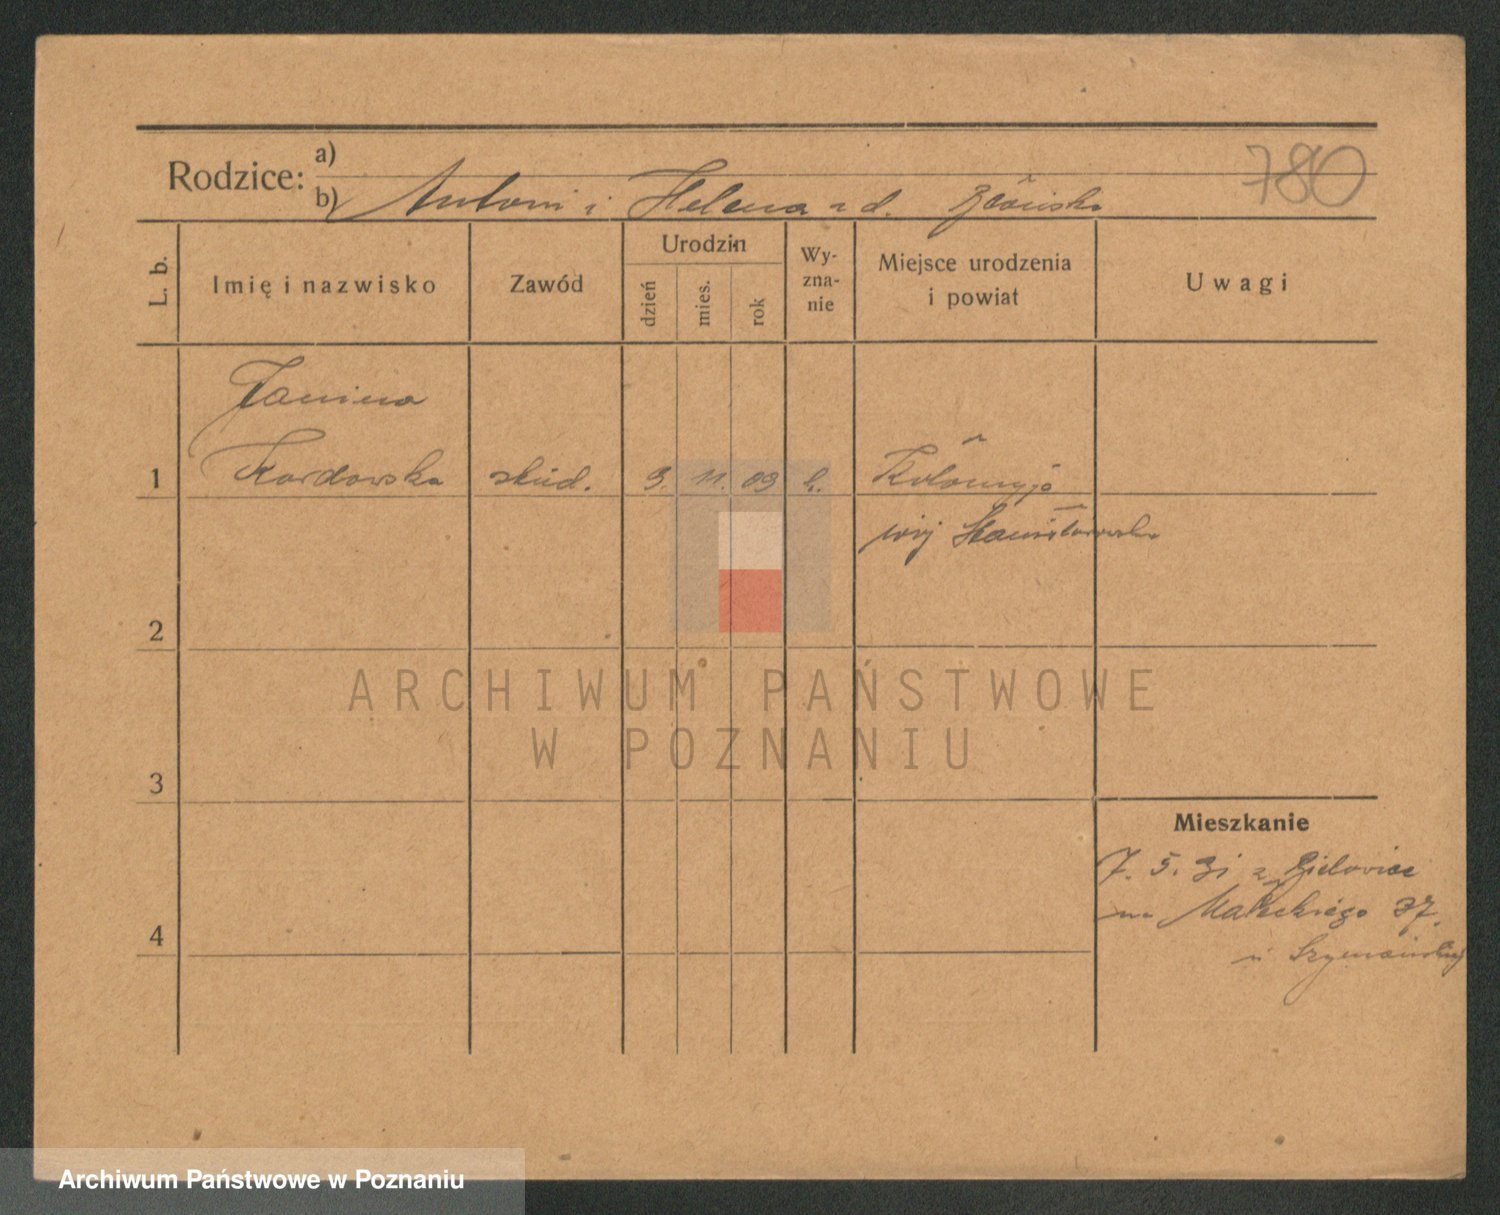 780
Rodzice: a)
b) Antoni i Helena z d.
L. b.
Imię i nazwisko
Zawód
Urodzin
dzień
mies.
rok
Wy-
zna-
nie
Miejsce urodzenia
i powiat
Uwagi
Janina
1 Kordowska stud. 9. 11. 09 k. Kołomyja
woj Stanisławowskie
2
3
4
Mieszkanie
7. 5. 31 z
na Małeckiego 37.
u Szymańskiej
ARCHIWUM PAŃSTWOWE
W POZNANIU
Archiwum Państwowe w Poznaniu